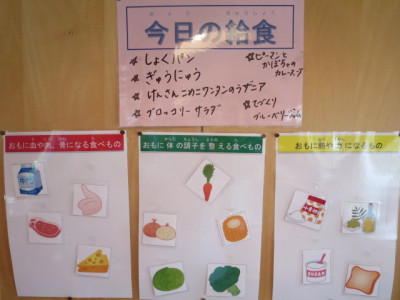 今日の給食
☆しょくパン
☆ぎゅうにゅう
☆けんさんこめこワンタンのラザニア
☆ブロッコリーサラダ
☆ピーマンと
かぼちゃの
カレースープ
☆てづくり
ブルーベリージャム
おもに血や肉、骨になる食べもの
おもに体の調子を整える食べもの
おもに熱や力になる食べもの
SUGAR